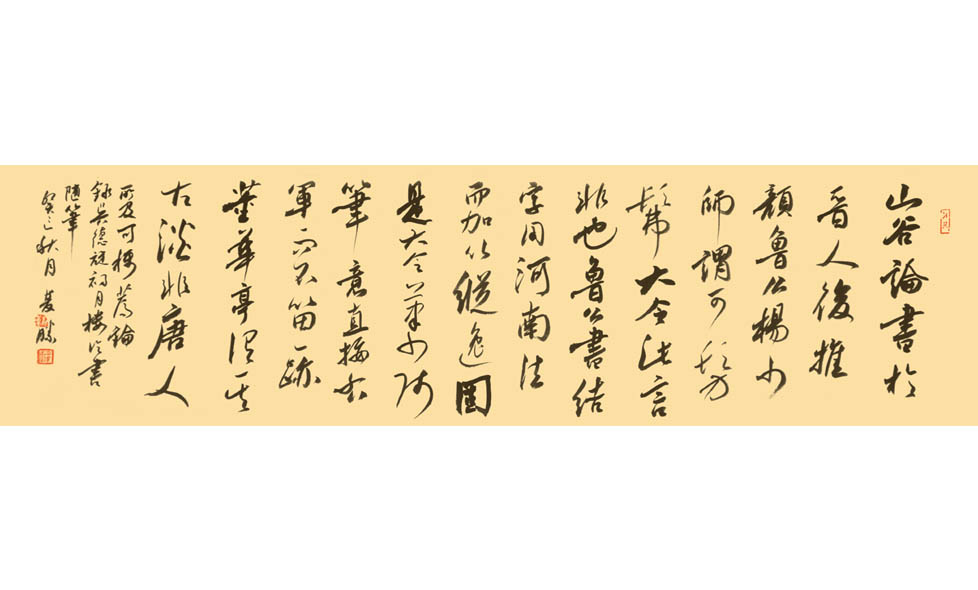 山谷論書於
晉人後推
顏魯公楊少
師謂可髣
髴大令此言
非也魯公書結
字用河南法
而加以縱逸固
是大令筆少師
筆意直右
軍而不留一跡
董華亭謂其
古淡非唐人
所及可稱篤論
錄吳德旋初月樓論書
隨筆
癸巳秋月